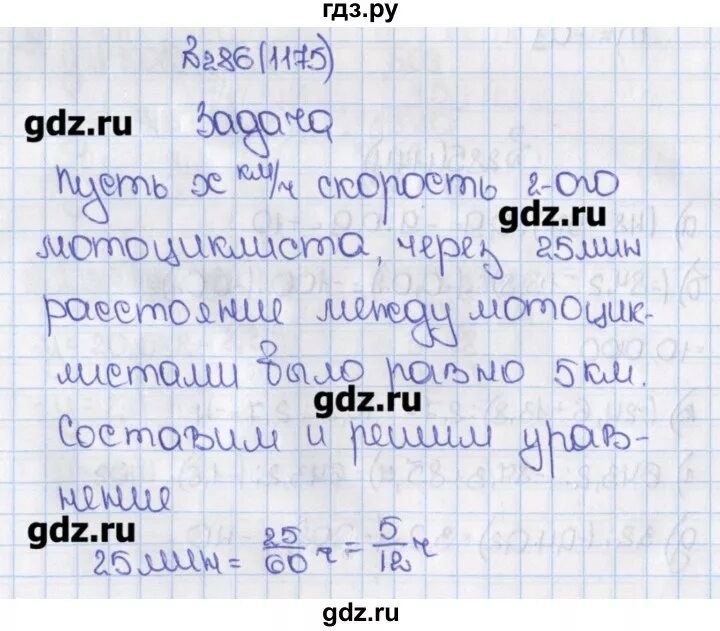 гдз.ру
№286(1175)
gdz.ru Задача
Пусть x км/ч скорость 2-ого
gdz.ru
мотоциклиста, через 25 мин
расстояние между мотоцик-
листами было равно 5 км.
gdz.ru
Составим и решим урав-
нение
gdz.ru
25 мин = 25/60 ч = 5/12 ч
gdz.ru